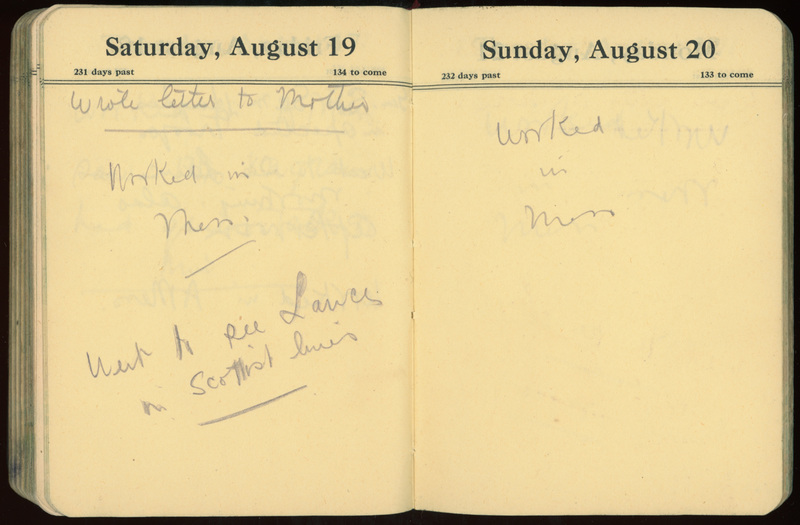 Saturday, August 19
231 days past 134 to come
Wrote letter to Mother
Worked in
Mess.
Went to see
in Scottish lines
Sunday, August 20
232 days past 133 to come
Worked
in
Mess